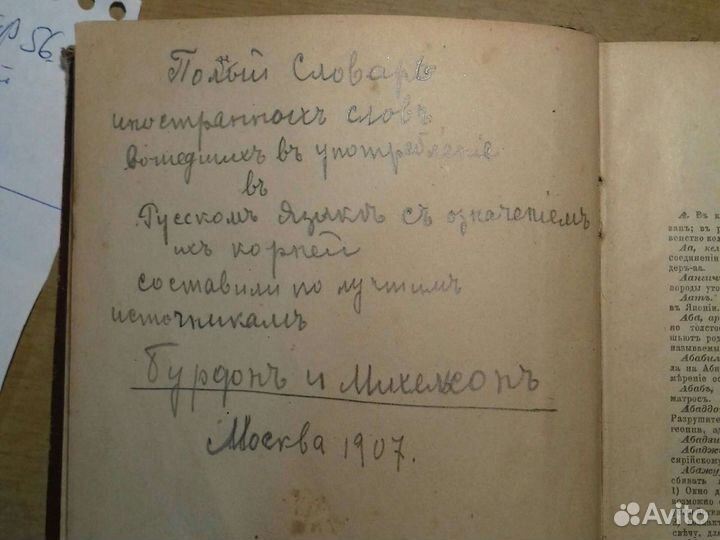 Полный Словарь
иностранныхъ словъ
вошедшихъ въ употребленіе
въ
Русскомъ языкѣ съ означеніемъ
ихъ корней
составили по лучшимъ
источникамъ
Бурдонъ и Михельсонъ
Москва 1907.
56
А. Въ к
вань; въ р
венство кол
Аа, кел
соединеніи
деръ-аа.
Аангич
породы уто
Аатъ.
въ Японіи.
Аба, ар
но толстое
шьютъ род
называемы
Абабил
ла на Аби
мѣреніе со
Абабъ,
матросъ.
Абаддо
Разрушите
геенна, ад
Абадзи
Абаджи
сярійскому
Абажу
сбивать
1) Окно д
возможно с
свѣчу, дл
Avito